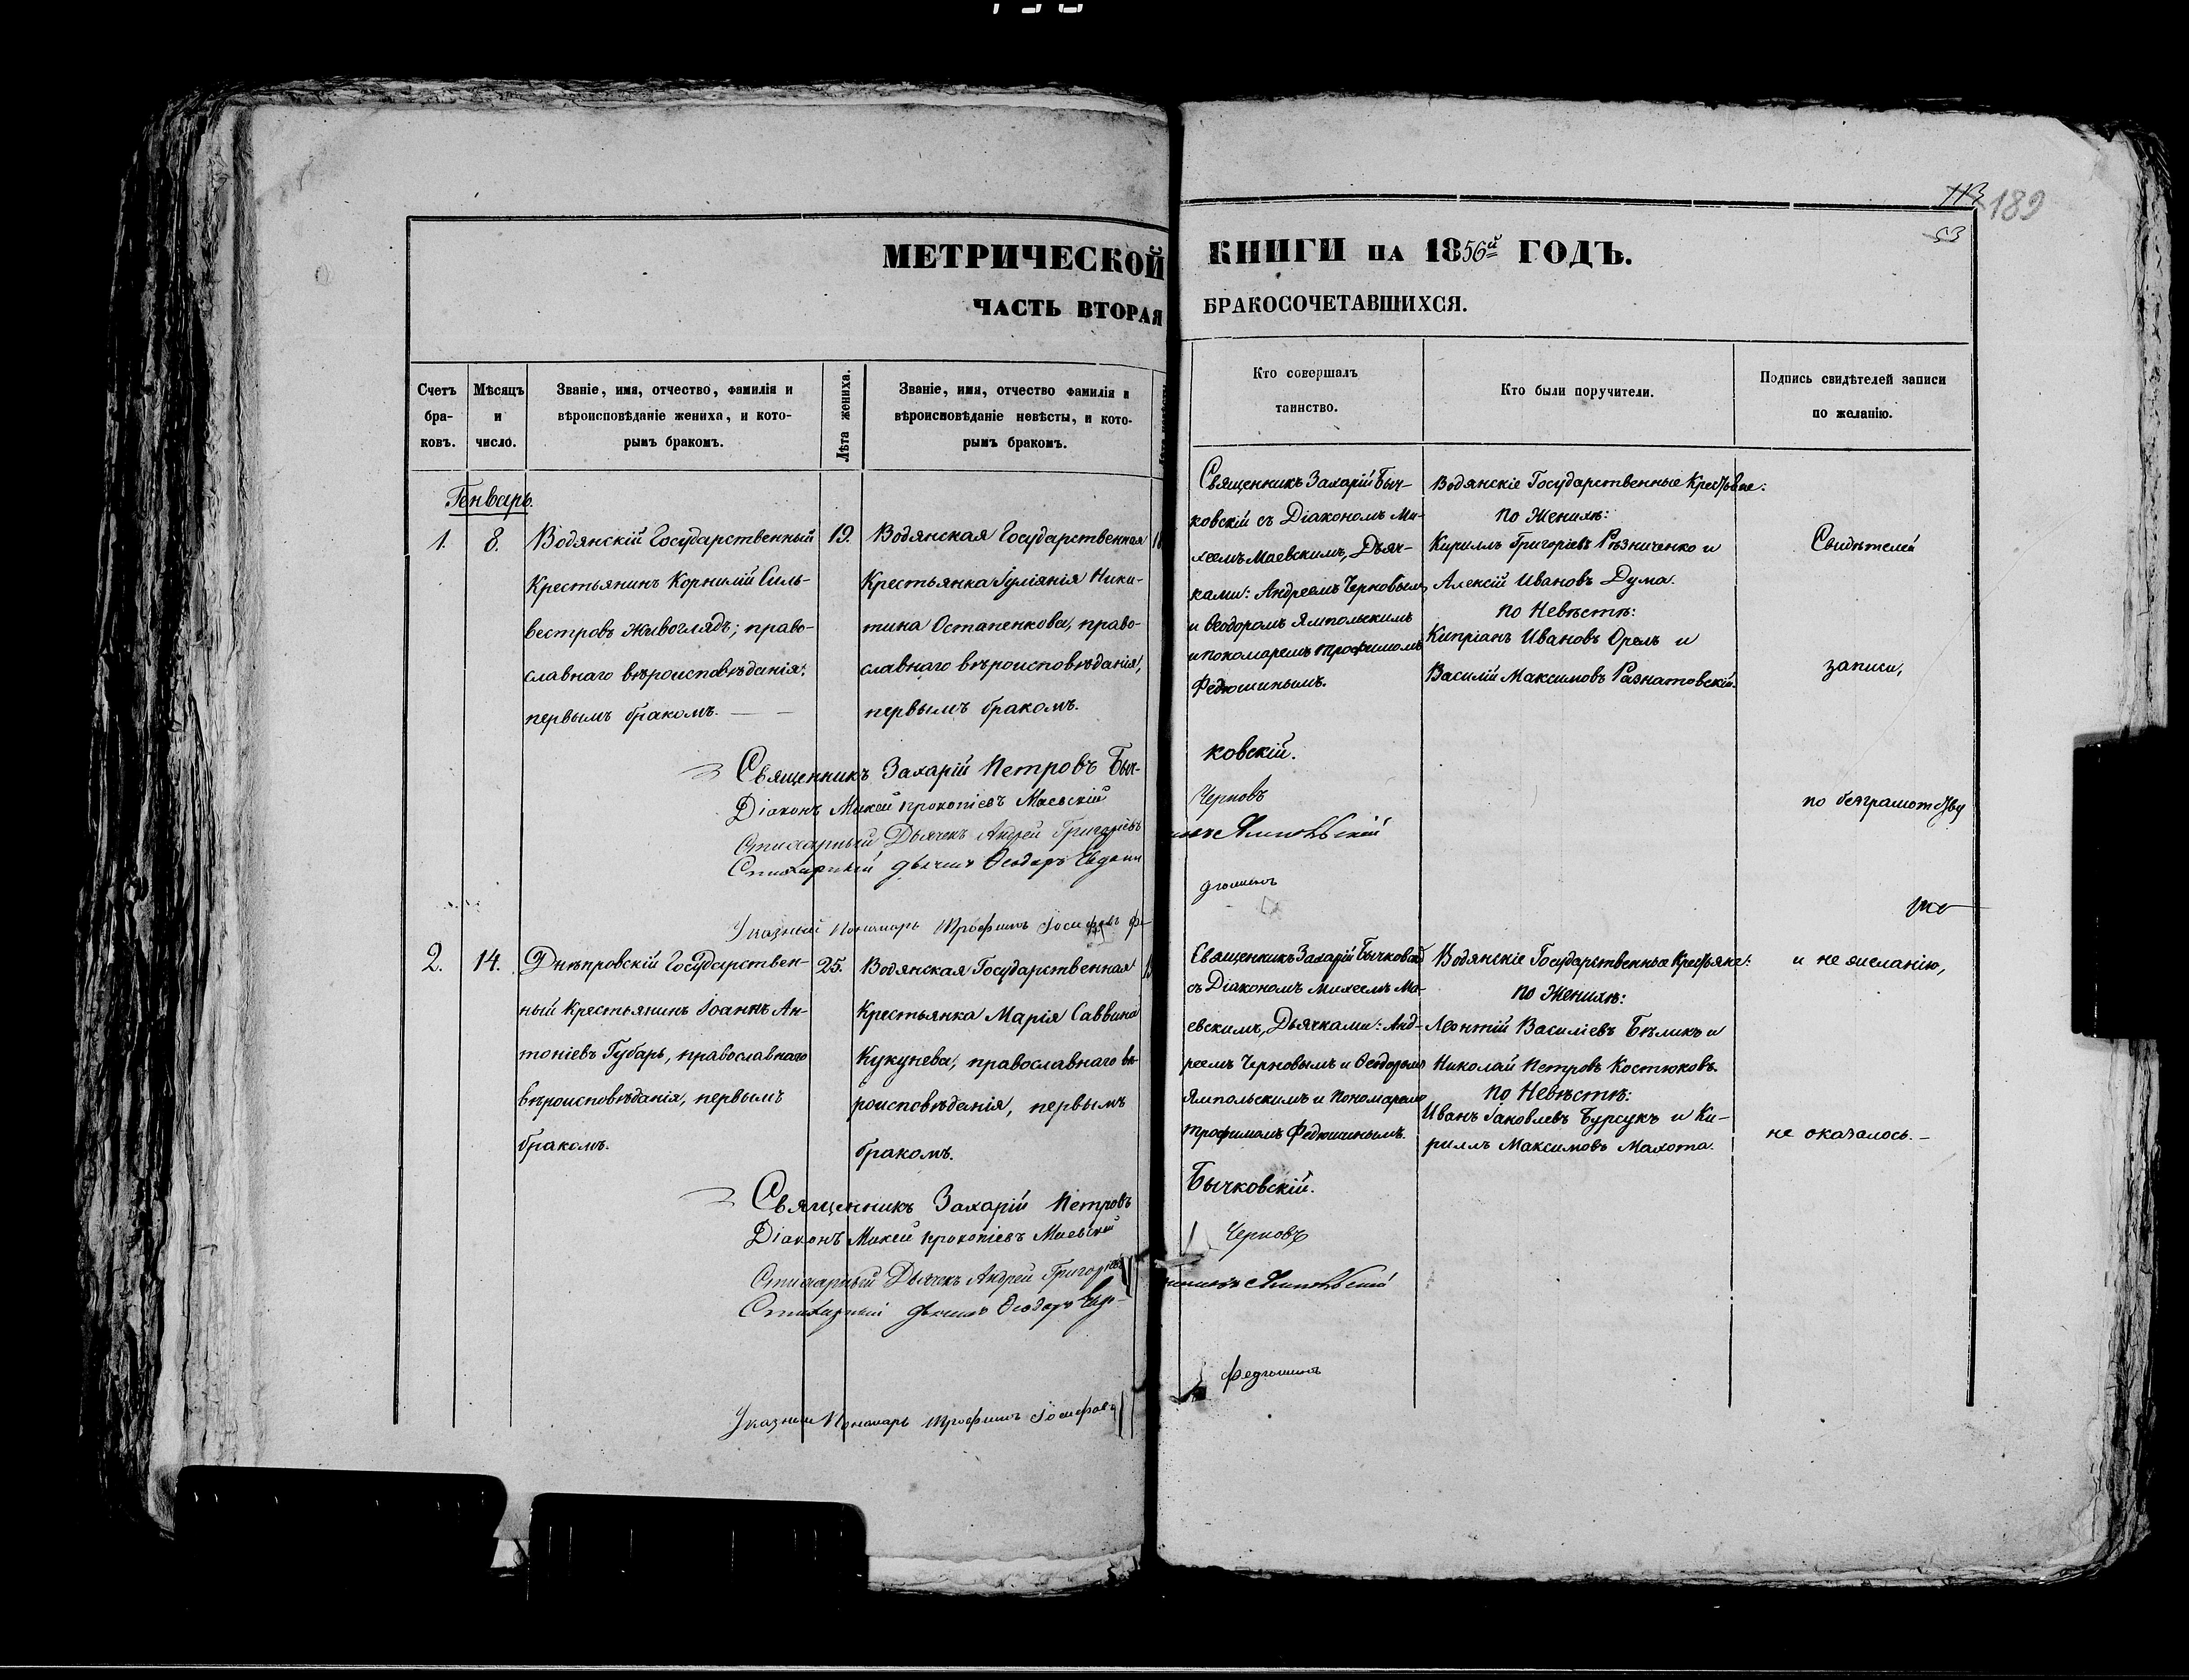 113 189
53
МЕТРИЧЕСКОЙ КНИГИ НА 1856й ГОДЪ.
ЧАСТЬ ВТОРАЯ БРАКОСОЧЕТАВШИХСЯ.
Счетъ
бра-
ковъ.
Мѣсяцъ
и
число.
Званіе, имя, отчество, фамилія и
вѣроисповѣданіе жениха, и кото-
рымъ бракомъ.
Лѣта жениха.
Званіе, имя, отчество фамилія и
вѣроисповѣданіе невѣсты, и кото-
рымъ бракомъ.
Кто совершалъ
таинство.
Кто были поручители.
Подпись свидѣтелей записи
по желанію.
Генварь.
1.
8.
Водянскій Государственный
Крестьянинъ Корнилій Силь-
вестровъ Живоглядъ; право-
славнаго вѣроисповѣданія;
первымъ бракомъ. — —
19.
Водянская Государственная
Крестьянка Іуліанія Ники-
тина Остапенкова, право-
славнаго вѣроисповѣданія,
первымъ бракомъ.
Священникъ Захарій Быч-
ковскій съ Діакономъ Ми-
хеемъ Маевскимъ, Дьяч-
ками: Андреемъ Черновымъ
и Ѳеодоромъ Ямпольскимъ
и покомаремъ Трофимомъ
Федюшинымъ.
Водянскіе Государственные Крестьяне:
по Женихѣ:
Кириллъ Григоріевъ Рѣзниченко и
Алексій Ивановъ Дума.
по Невѣстѣ:
Кипріанъ Ивановъ Орелъ и
Василій Максимовъ Разнатовскій.
Свидѣтелей
записи,
по безграмотству
ихъ
и не желанію,
не оказалось. —
Священникъ Захарій Петровъ Быч-
ковскій.
Діаконъ Михей Прокопіевъ Маевскій
Стихарный Дьячекъ Андрей Григоріевъ
Черновъ
Стихарный дьячекъ Ѳеодоръ Евдоки
Ямпольскій
Указный Пономарь Трофимъ Іосифовъ Фе-
дюшинъ
2.
14.
Днѣпровскій Государствен-
ный Крестьянинъ Іоаннъ Ан-
тоніевъ Губарь, православнаго
вѣроисповѣданія, первымъ
бракомъ.
25.
Водянская Государственная
Крестьянка Марія Саввина
Кукунева, православнаго вѣ-
роисповѣданія, первымъ
бракомъ.
Священникъ Захарій Бычковскій
съ Діакономъ Михеемъ Ма-
евскимъ, Дьячками: Анд-
реемъ Черновымъ и Ѳеодоромъ
Ямпольскимъ и Пономаремъ
Трофимомъ Федюшинымъ.
Водянскіе Государственные Крестьяне:
по Женихѣ:
Леонтій Василіевъ Бѣликъ и
Николай Петровъ Костюковъ.
по Невѣстѣ:
Иванъ Іаковлевъ Бурсукъ и Ки-
риллъ Максимовъ Махота.
Священникъ Захарій Петровъ
Бычковскій.
Діаконъ Михей Прокопіевъ Маевскій
Стихарный Дьячекъ Андрей Григоріевъ
Черновъ
Стихарный дьячекъ Ѳеодоръ Евдо-
Ямпольскій
Указный Пономарь Трофимъ Іосифовъ
Федюшинъ